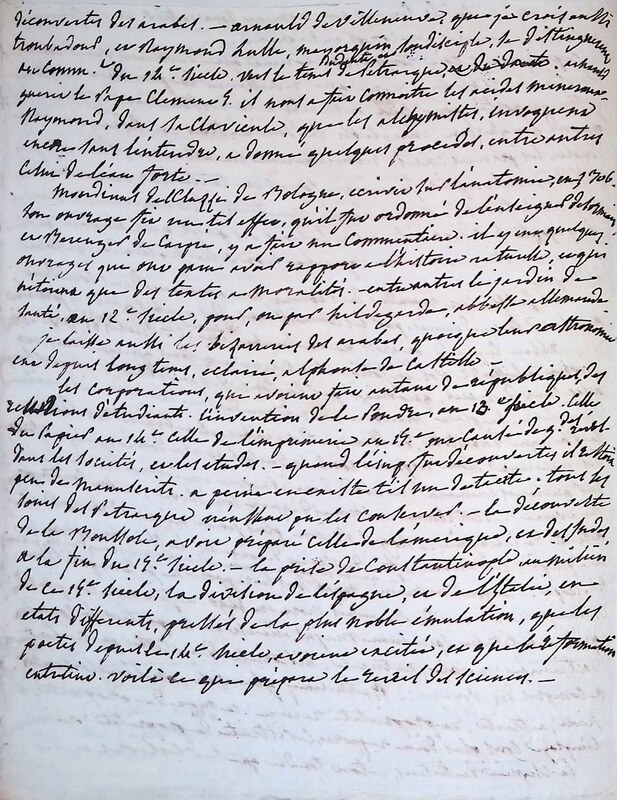 découvertes des arabes. — arnauld de villeneuve, que je crois
troubadour, et Raymond Lulle, mayorquin, son disciple, se distinguerent
au comm.t du 14e. siecle. vers le tems de petrarque, et de dante, arnauld
guerit le Pape Clement 5. il nous a fait connoitre les acides mineraux
Raymond, dans sa clavicule, que les alchymistes, invoquent
encor sans l'entendre, a donné quelques procedés, entre autres
celui de l'eau forte. —
Mondinus de Bologne, ecrivit sur l'anatomie, en 1306.
son ouvrage fit un tel effet, qu'il fut ordonné de l'enseigner
et Berenger de Carpi, y a fait un commentaire. il y eut quelques
ouvrages qui ont pour avoir rapport a l'histoire naturelle, et qui
n'etoient que des textes a moralités. — entre autres le jardin de
santé, au 12e. siecle, par hildegarde, abbesse allemande
je laisse aussi les bizarreries des arabes, quoique leur astronomie
eut depuis longtems, eclairé, alphonse de Castille —
les corporations, qui avoient fait autant de républiques, des
d'etudiants. l'invention de la Poudre, au 13e siecle. celle
du Papier au 14e. celle de l'imprimerie au 15e. ont causé de g.ds
dans les societés, et les etudes. — quand l'imp. fut découverte, il existoit
peu de manuscrits. a peine en existe t'il un de tacite. tous les
soins de Petrarque n'ont pu les conserver. — la découverte
de la Boussole, avoit préparé celle de l'amerique, et des indes
a la fin du 15e. siecle. — la prise de Constantinople, au milieu
de ce 15e. siecle, la division de l'espagne, et de l'Italie, en
etats differents, pressés de la plus noble émulation, que les
poetes depuis le 14e. siecle, avoient excitée, et que la reformation
entretint. voilà ce qui prépara le reveil des sciences. —